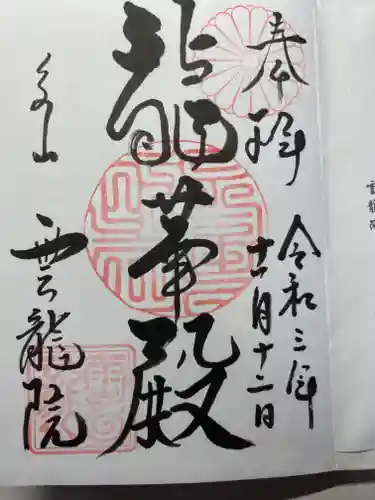 奉拝
令和三年
十一月十二日
龍華殿
泉山
雲龍院
雲龍院